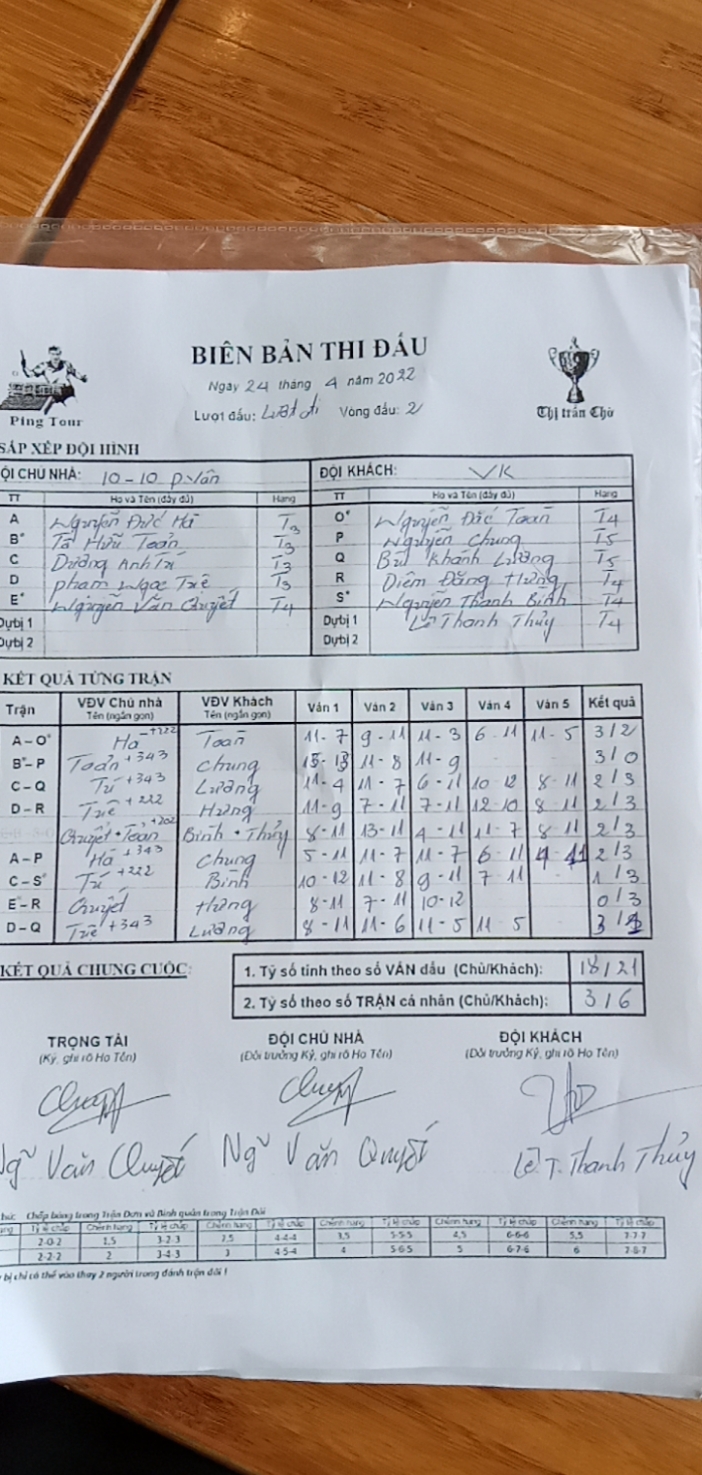 BIÊN BẢN THI ĐẤU
Ngày 24 tháng 4 năm 2022
Lượt đấu: Lượt đi Vòng đấu: 2
Ping Tour
Thị trấn Chờ
SẮP XẾP ĐỘI HÌNH
ỘI CHỦ NHÀ: 10-10 P.Vân ĐỘI KHÁCH: VK
TT Họ và Tên (đầy đủ) Hạng TT Họ và Tên (đầy đủ) Hạng
A Nguyễn Đức Hà T3 O* Nguyễn Đắc Toàn T4
B* Tạ Hữu Toản T3 P Nguyễn Chung T5
C Dương Anh Tú T3 Q Bùi Khánh Lương T5
D Phạm Ngọc Tuê T3 R Diêm Đăng Hưng T4
E* Nguyễn Văn Quyết T4 S* Nguyễn Thanh Bình T4
Dự bị 1 Dự bị 1 Lê Thanh Thủy T4
Dự bị 2 Dự bị 2
KẾT QUẢ TỪNG TRẬN
Trận VĐV Chủ nhà VĐV Khách Ván 1 Ván 2 Ván 3 Ván 4 Ván 5 Kết quả
Tên (ngắn gọn) Tên (ngắn gọn)
A – O* Hà +222 Toàn 11-7 9-11 11-3 6-11 11-5 3/2
B* – P Toản +343 Chung 15-13 11-8 11-9 3/0
C – Q Tú +343 Lương 11-4 11-7 6-11 10-12 8-11 2/3
D – R Tuê +222 Hưng 11-9 7-11 7-11 12-10 8-11 2/3
Quyết + Toản +202 Bình + Thủy 8-11 13-11 4-11 11-7 8-11 2/3
A – P Hà +343 Chung 5-11 11-7 11-7 6-11 4-11 2/3
C – S* Tú +222 Bình 10-12 11-8 9-11 7-11 1/3
E* – R Quyết Hưng 8-11 7-11 10-12 0/3
D – Q Tuê +343 Lương 8-11 11-6 11-5 11-5 3/1
KẾT QUẢ CHUNG CUỘC: 1. Tỷ số tính theo số VÁN đấu (Chủ/Khách): 18/21
2. Tỷ số theo số TRẬN cá nhân (Chủ/Khách): 3/6
TRỌNG TÀI ĐỘI CHỦ NHÀ ĐỘI KHÁCH
(Ký, ghi rõ Họ Tên) (Đội trưởng Ký, ghi rõ Họ Tên) (Đội trưởng Ký, ghi rõ Họ Tên)
Ngũ Văn Quyết Ngũ Văn Quyết Lê T. Thanh Thủy
Chấp bóng trong Trận Đơn và Bình quân trong Trận Đôi
Tỷ lệ chấp Chênh hạng Tỷ lệ chấp Chênh hạng Tỷ lệ chấp Chênh hạng Tỷ lệ chấp Chênh hạng Tỷ lệ chấp Chênh hạng Tỷ lệ chấp
2-0-2 1,5 3-2-3 2,5 4-4-4 3,5 5-5-5 4,5 6-6-6 5,5 7-7-7
2-2-2 2 3-4-3 3 4-5-4 4 5-6-5 5 6-7-6 6 7-8-7
bị chỉ có thể vào thay 2 người trong đánh trận đôi !